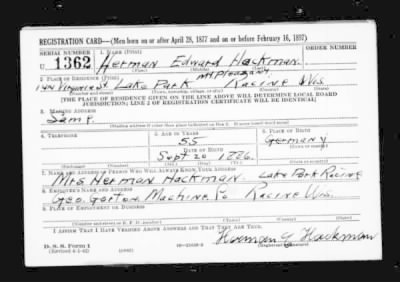 REGISTRATION CARD—(Men born on or after April 28, 1877 and on or before February 16, 1897)
SERIAL NUMBER 1. NAME (Print) ORDER NUMBER
U 1362 Herman Edward Hackman
(First) (Middle) (Last)
Mt Pleasant
2. PLACE OF RESIDENCE (Print)
Lake Park Racine Wis.
(Number and street) (Town, township, village, or city) (County) (State)
[THE PLACE OF RESIDENCE GIVEN ON THE LINE ABOVE WILL DETERMINE LOCAL BOARD
JURISDICTION; LINE 2 OF REGISTRATION CERTIFICATE WILL BE IDENTICAL]
3. MAILING ADDRESS
Same
(Mailing address if other than place indicated on line 2. If same insert word same)
4. TELEPHONE 5. AGE IN YEARS 6. PLACE OF BIRTH
55 Germany
DATE OF BIRTH (Town or county)
Sept 20 1886
(Mo.) (Day) (Yr.) (State or country)
7. NAME AND ADDRESS OF PERSON WHO WILL ALWAYS KNOW YOUR ADDRESS
Mrs Herman Hackman Lake Park Racine
8. EMPLOYER'S NAME AND ADDRESS
Geo. Gorton Machine Co Racine Wis.
9. PLACE OF EMPLOYMENT OR BUSINESS
(Number and street or R. F. D. number) (Town) (County) (State)
I AFFIRM THAT I HAVE VERIFIED ABOVE ANSWERS AND THAT THEY ARE TRUE.
D. S. S. Form 1
(Revised 4-1-42) (over) Herman E Hackman